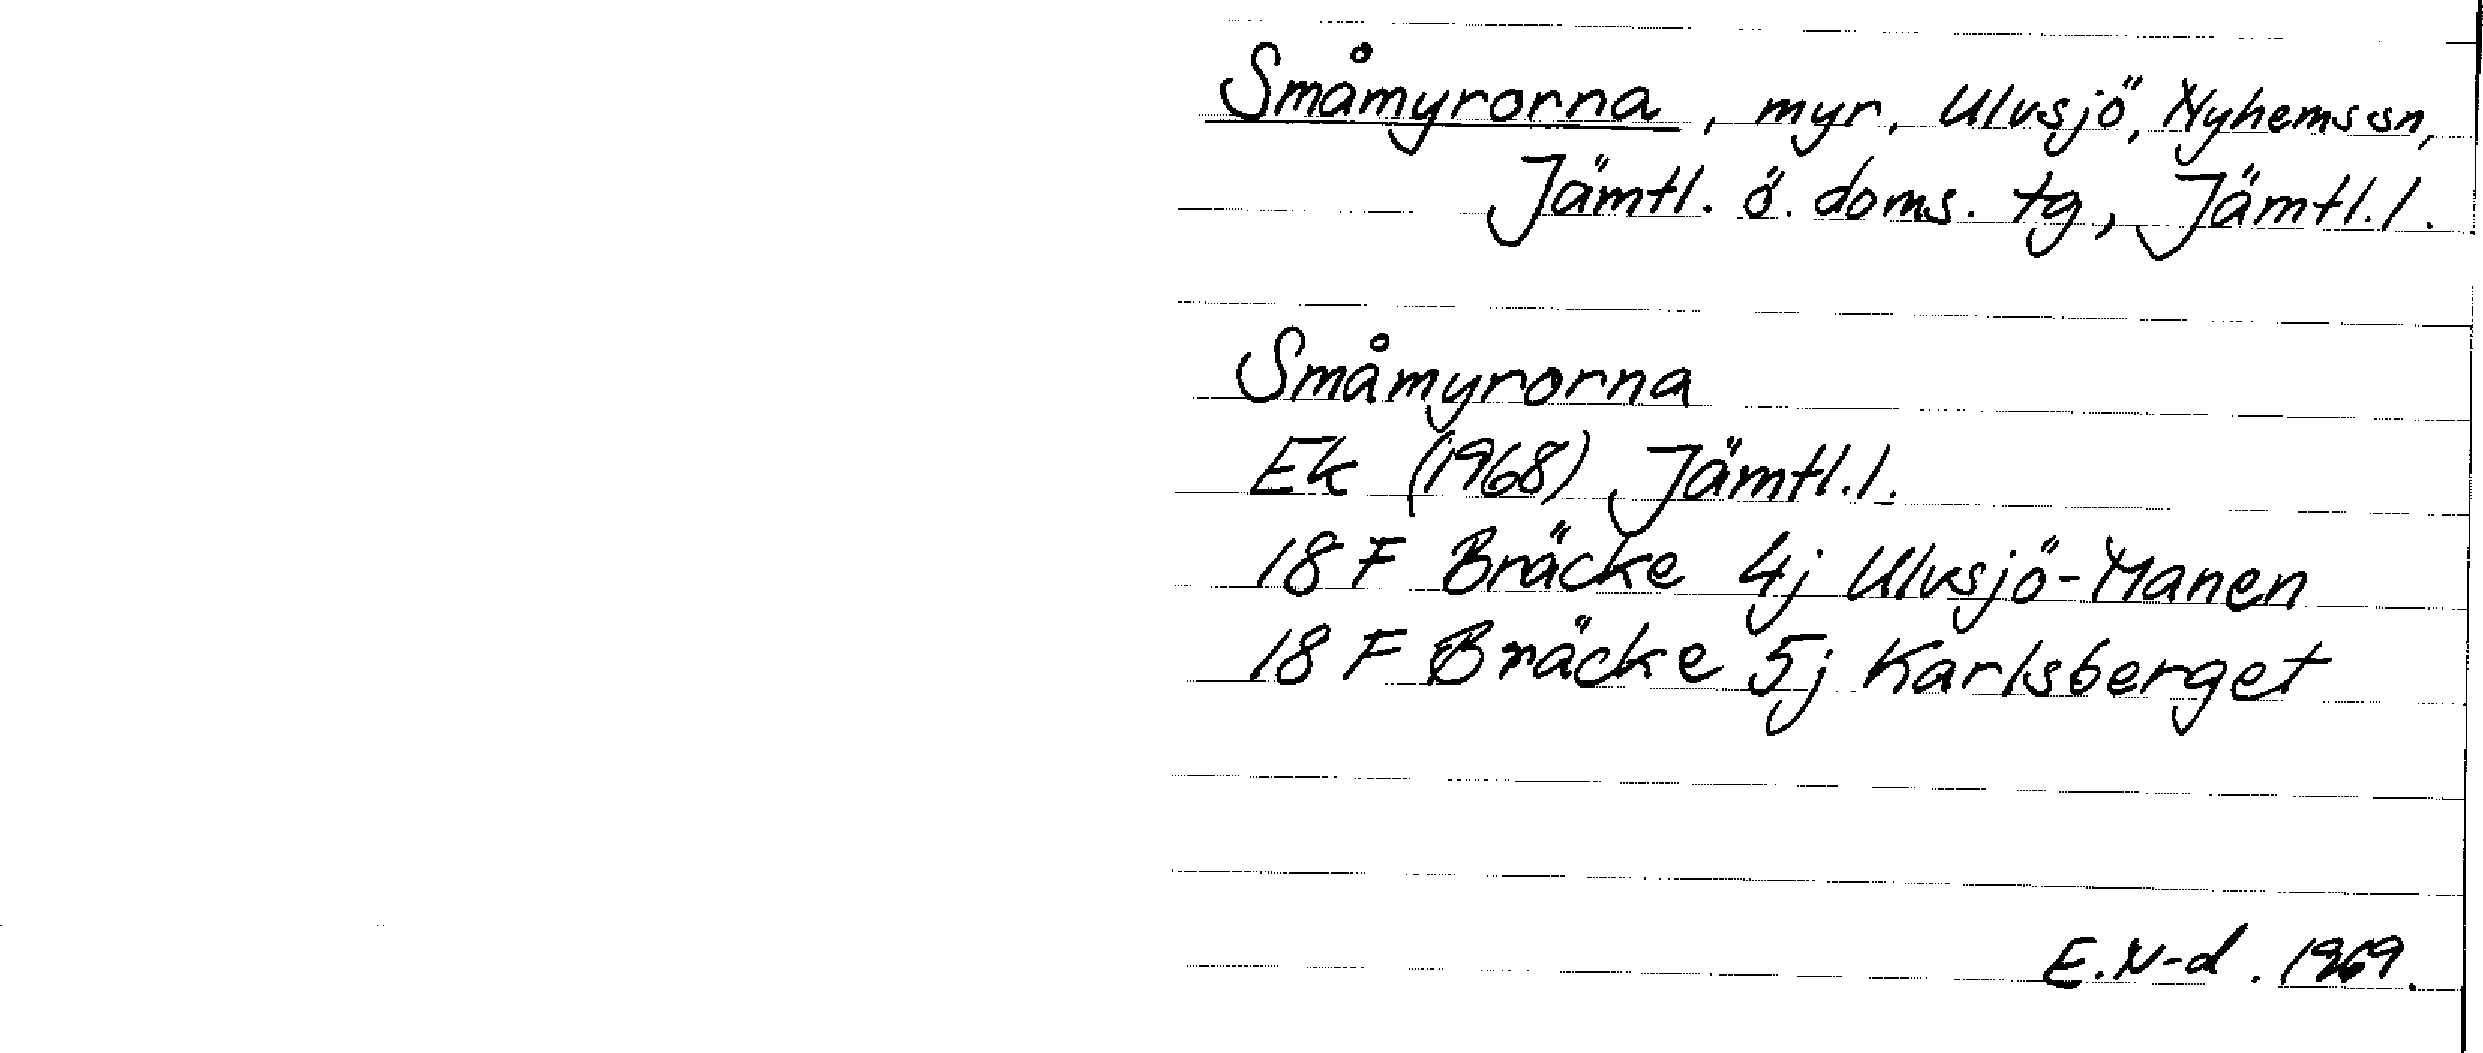 Småmyrorna, myr, Ulvsjö, Nyhems sn,
Jämtl. ö. doms. tg, Jämtl. l.
Småmyrorna
Ek (1968) Jämtl. l.
18 F Bräcke 4j Ulvsjö-Manen
18 F Bräcke 5j Karlsberget
E. N-d. 1969.